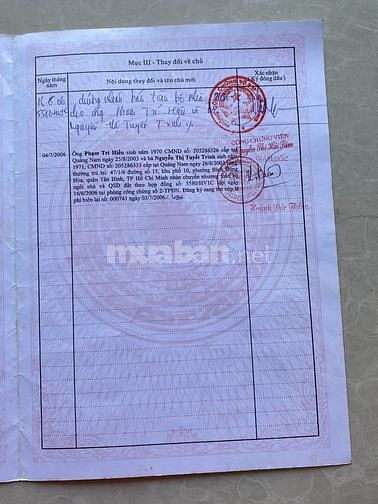 Mục III - Thay đổi về chủ
Ngày tháng năm
Nội dung thay đổi và tên chủ mới
Xác nhận
(Ký đóng dấu)
16.6.06
chứng nhận bán toàn bộ nhà
cho ông Phạm Trí Hiếu và bà
Nguyễn Thị Tuyết Trinh
CÔNG CHỨNG VIÊN
04/7/2006
Ông Phạm Trí Hiếu sinh năm 1970 CMND số: 205286326 cấp tại
Quảng Nam ngày 25/8/2003 và bà Nguyễn Thị Tuyết Trinh sinh năm
1971, CMND số: 205286333 cấp tại Quảng Nam ngày 26/8/2003 cùng
thường trú tại: 47/1/6 đường số 15, khu phố 10, phường Bình Hưng
Hòa, quận Tân Bình, TP Hồ Chí Minh nhận chuyển nhượng
ngôi nhà và QSD đất theo hợp đồng số: 5580/HV1C lập ngày
16/6/2006 tại phòng công chứng số: 2-TPĐN. Đăng ký sang tên nộp lệ
phí biên lai số: 000741 ngày 03/7/2006
GIÁM ĐỐC
Huỳnh Đức
muaban.net